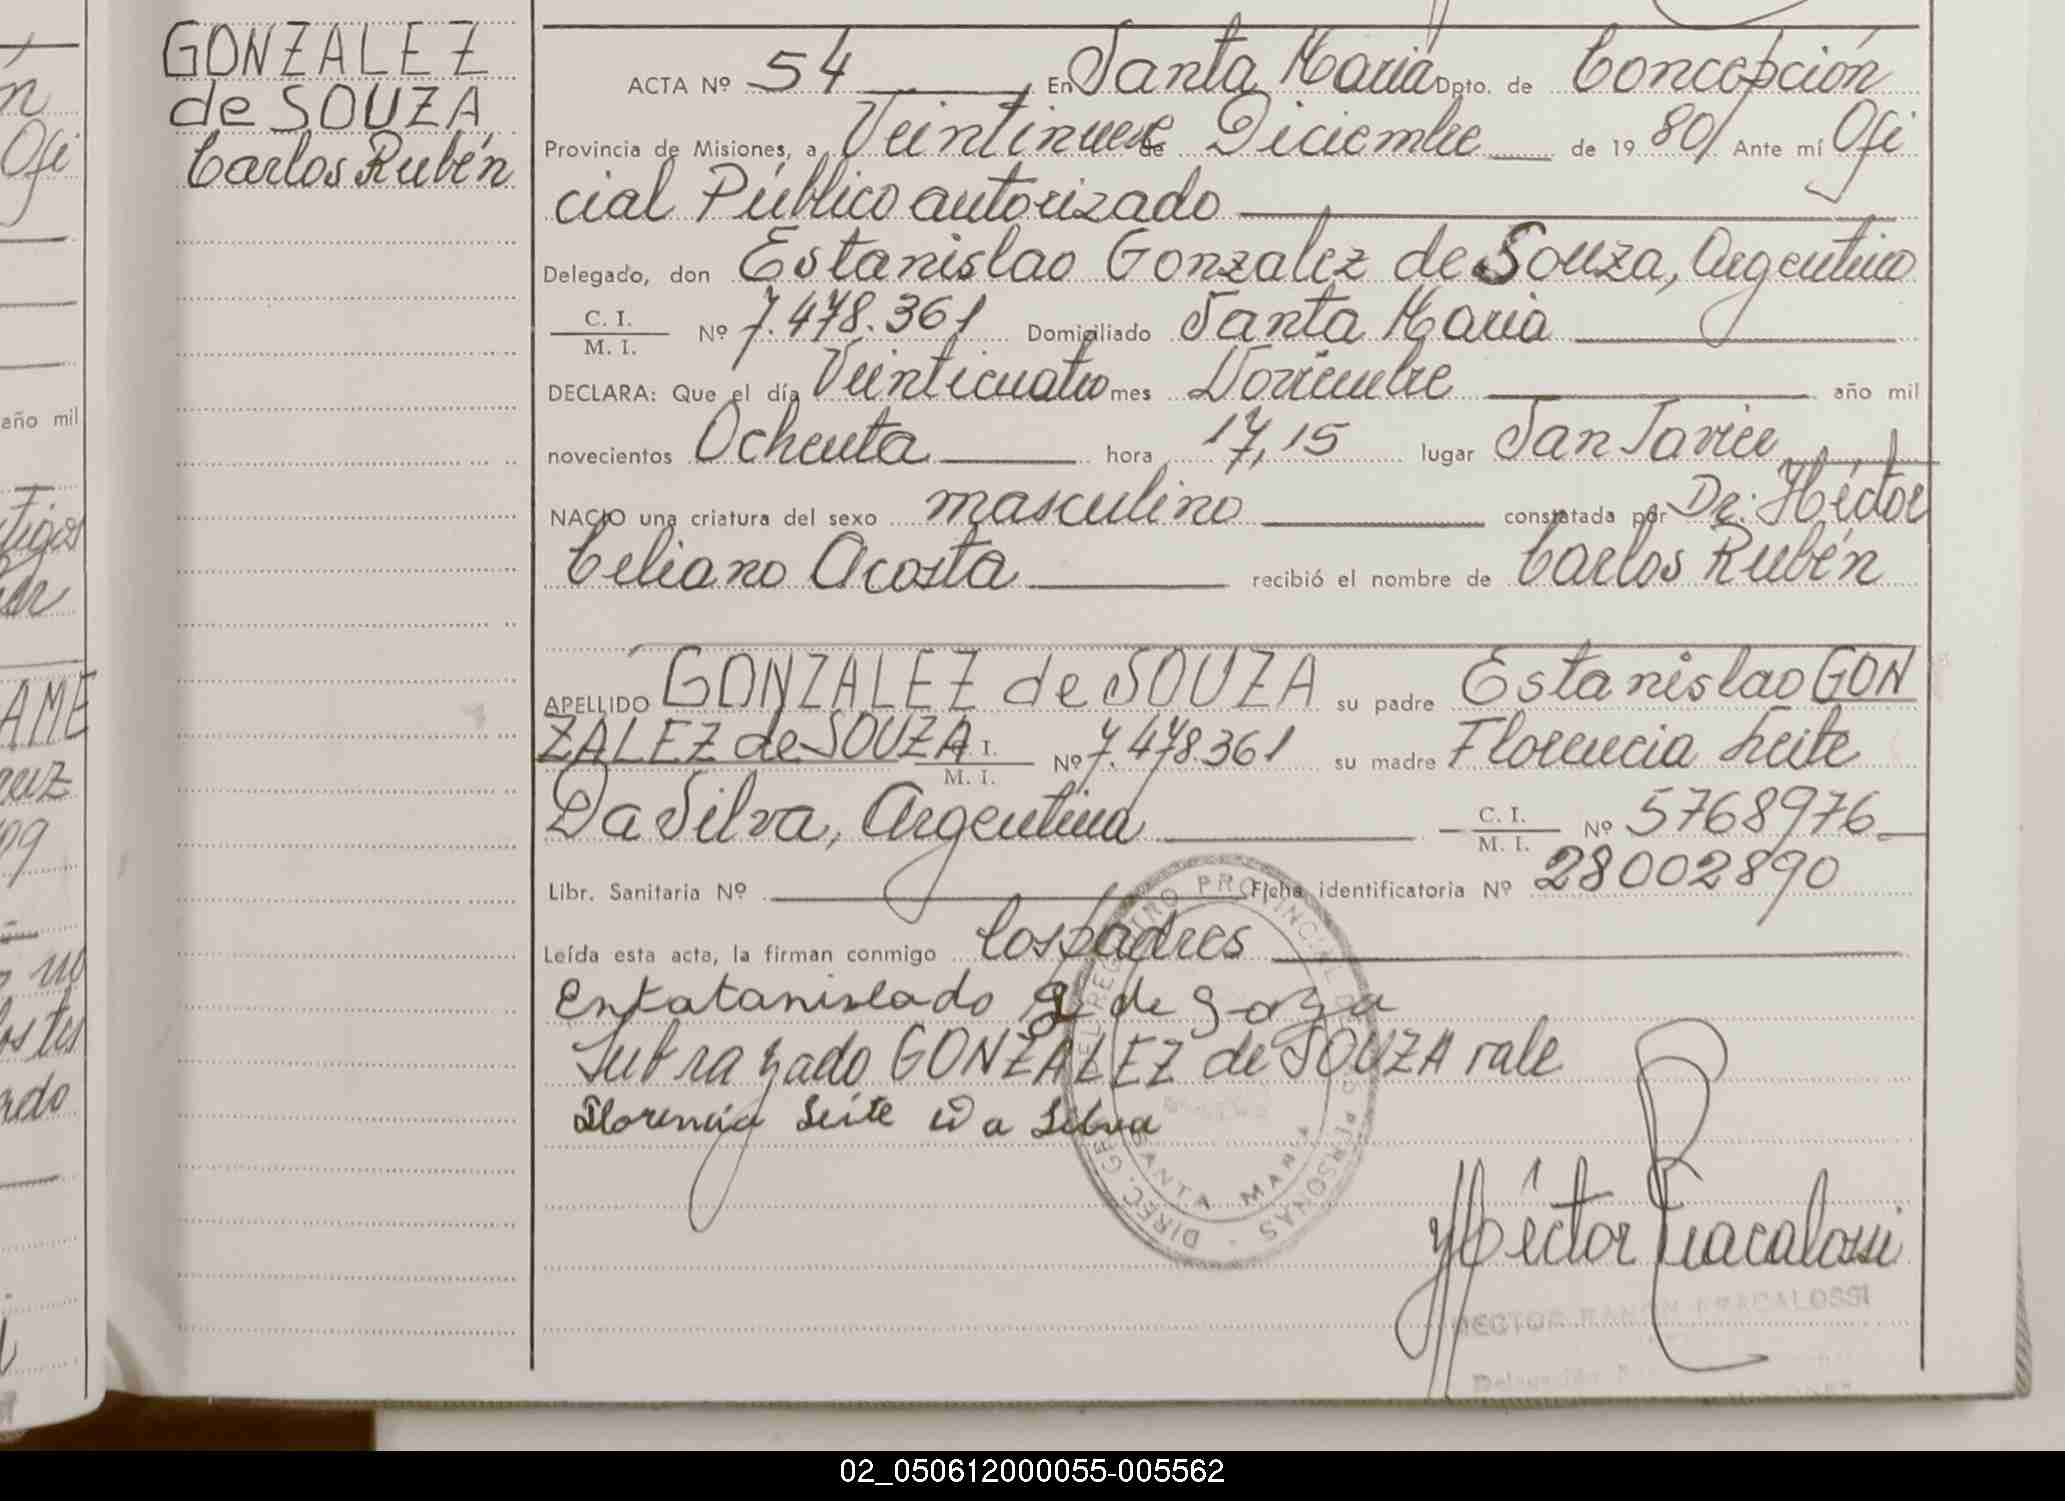 GONZALEZ
de SOUZA
Carlos Rubén
ACTA Nº 54 En Santa Maria Dpto. de Concepción
Provincia de Misiones, a Veintinueve de Diciembre de 19 80/ Ante mí Ofi
cial Público autorizado
Delegado, don Estanislao Gonzalez de Souza, Argentino
C. I.
M. I. Nº 7.478.361 Domiciliado Santa Maria
DECLARA: Que el día Veinticuatro mes Noviembre año mil
novecientos Ochenta hora 17,15 lugar San Javier
NACIO una criatura del sexo masculino constatada por Dr. Héctor
Celiano Acosta recibió el nombre de Carlos Rubén
APELLIDO GONZALEZ de SOUZA su padre Estanislao GON
ZALEZ de SOUZA C. I.
M. I. Nº 7.478.361 su madre Florencia Leite
Da Silva, Argentina C. I.
M. I. Nº 5768976
Libr. Sanitaria Nº Ficha identificatoria Nº 28002890
Leída esta acta, la firman conmigo los padres
Entatanislado g de Soza
Subrayado GONZALEZ de SOUZA vale
Florencia Leite Da Silva
DIREC. GE DEL REGISTRO PROVINCIAL DE PERSONAS
SANTA MARIA
Héctor Fracalossi
HECTOR RAMON FRACALOSSI
n
Ofi
año mil
AME
uz
99
tes
ado
02_050612000055-005562